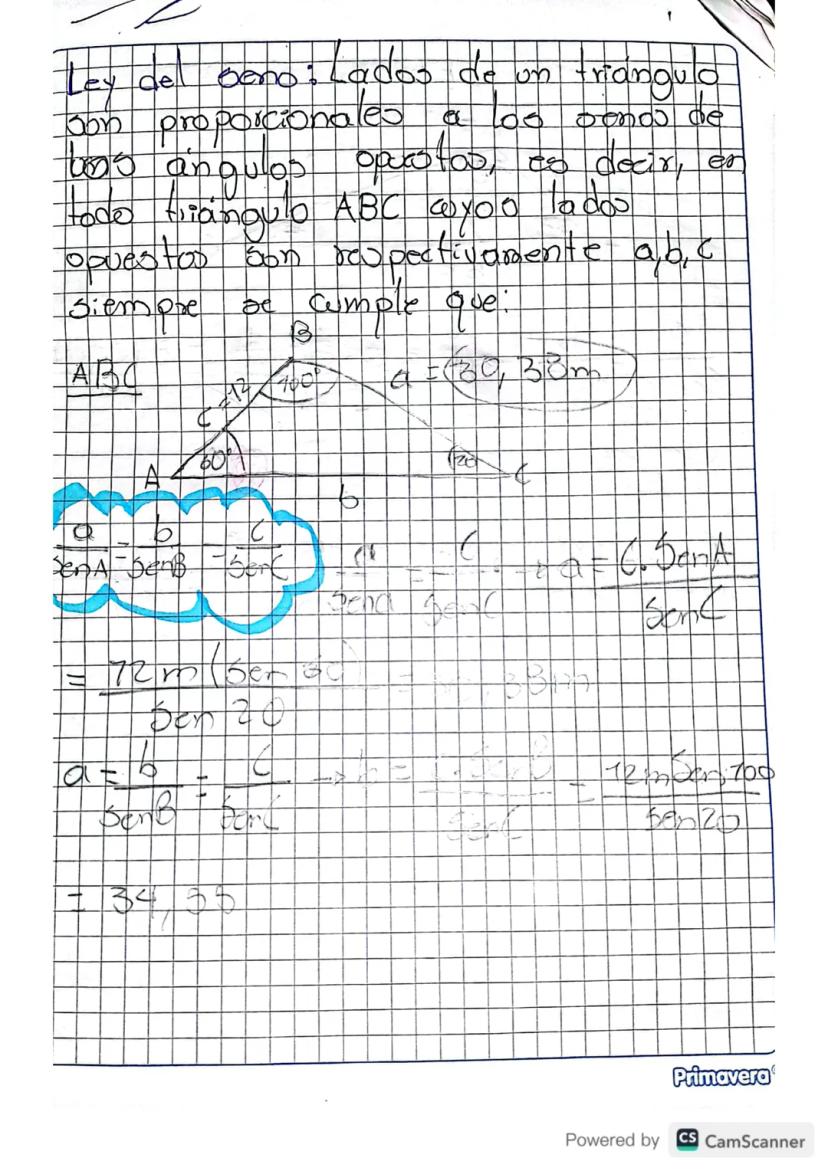 Ley del seno: Lados de un triángulo
son proporcionales a los senos de
los ángulos opuestos, es decir, en
todo triángulo ABC cuyos lados
opuestos son respectivamente a,b,c
siempre se cumple que:
B
ABC
c = 12
100°
a = 30, 38m
A
60°
20
C
b
a/SenA = b/SenB = c/SenC
a/Sena = c/SenC → a = C. SenA/SenC
= 12m (Sen 60)/Sen 20 = 38m
a = b/SenB = C/SenC → b = C.SenB/SenC = 12m Sen 100/Sen 20
= 34,
Primavera
Powered by CS CamScanner